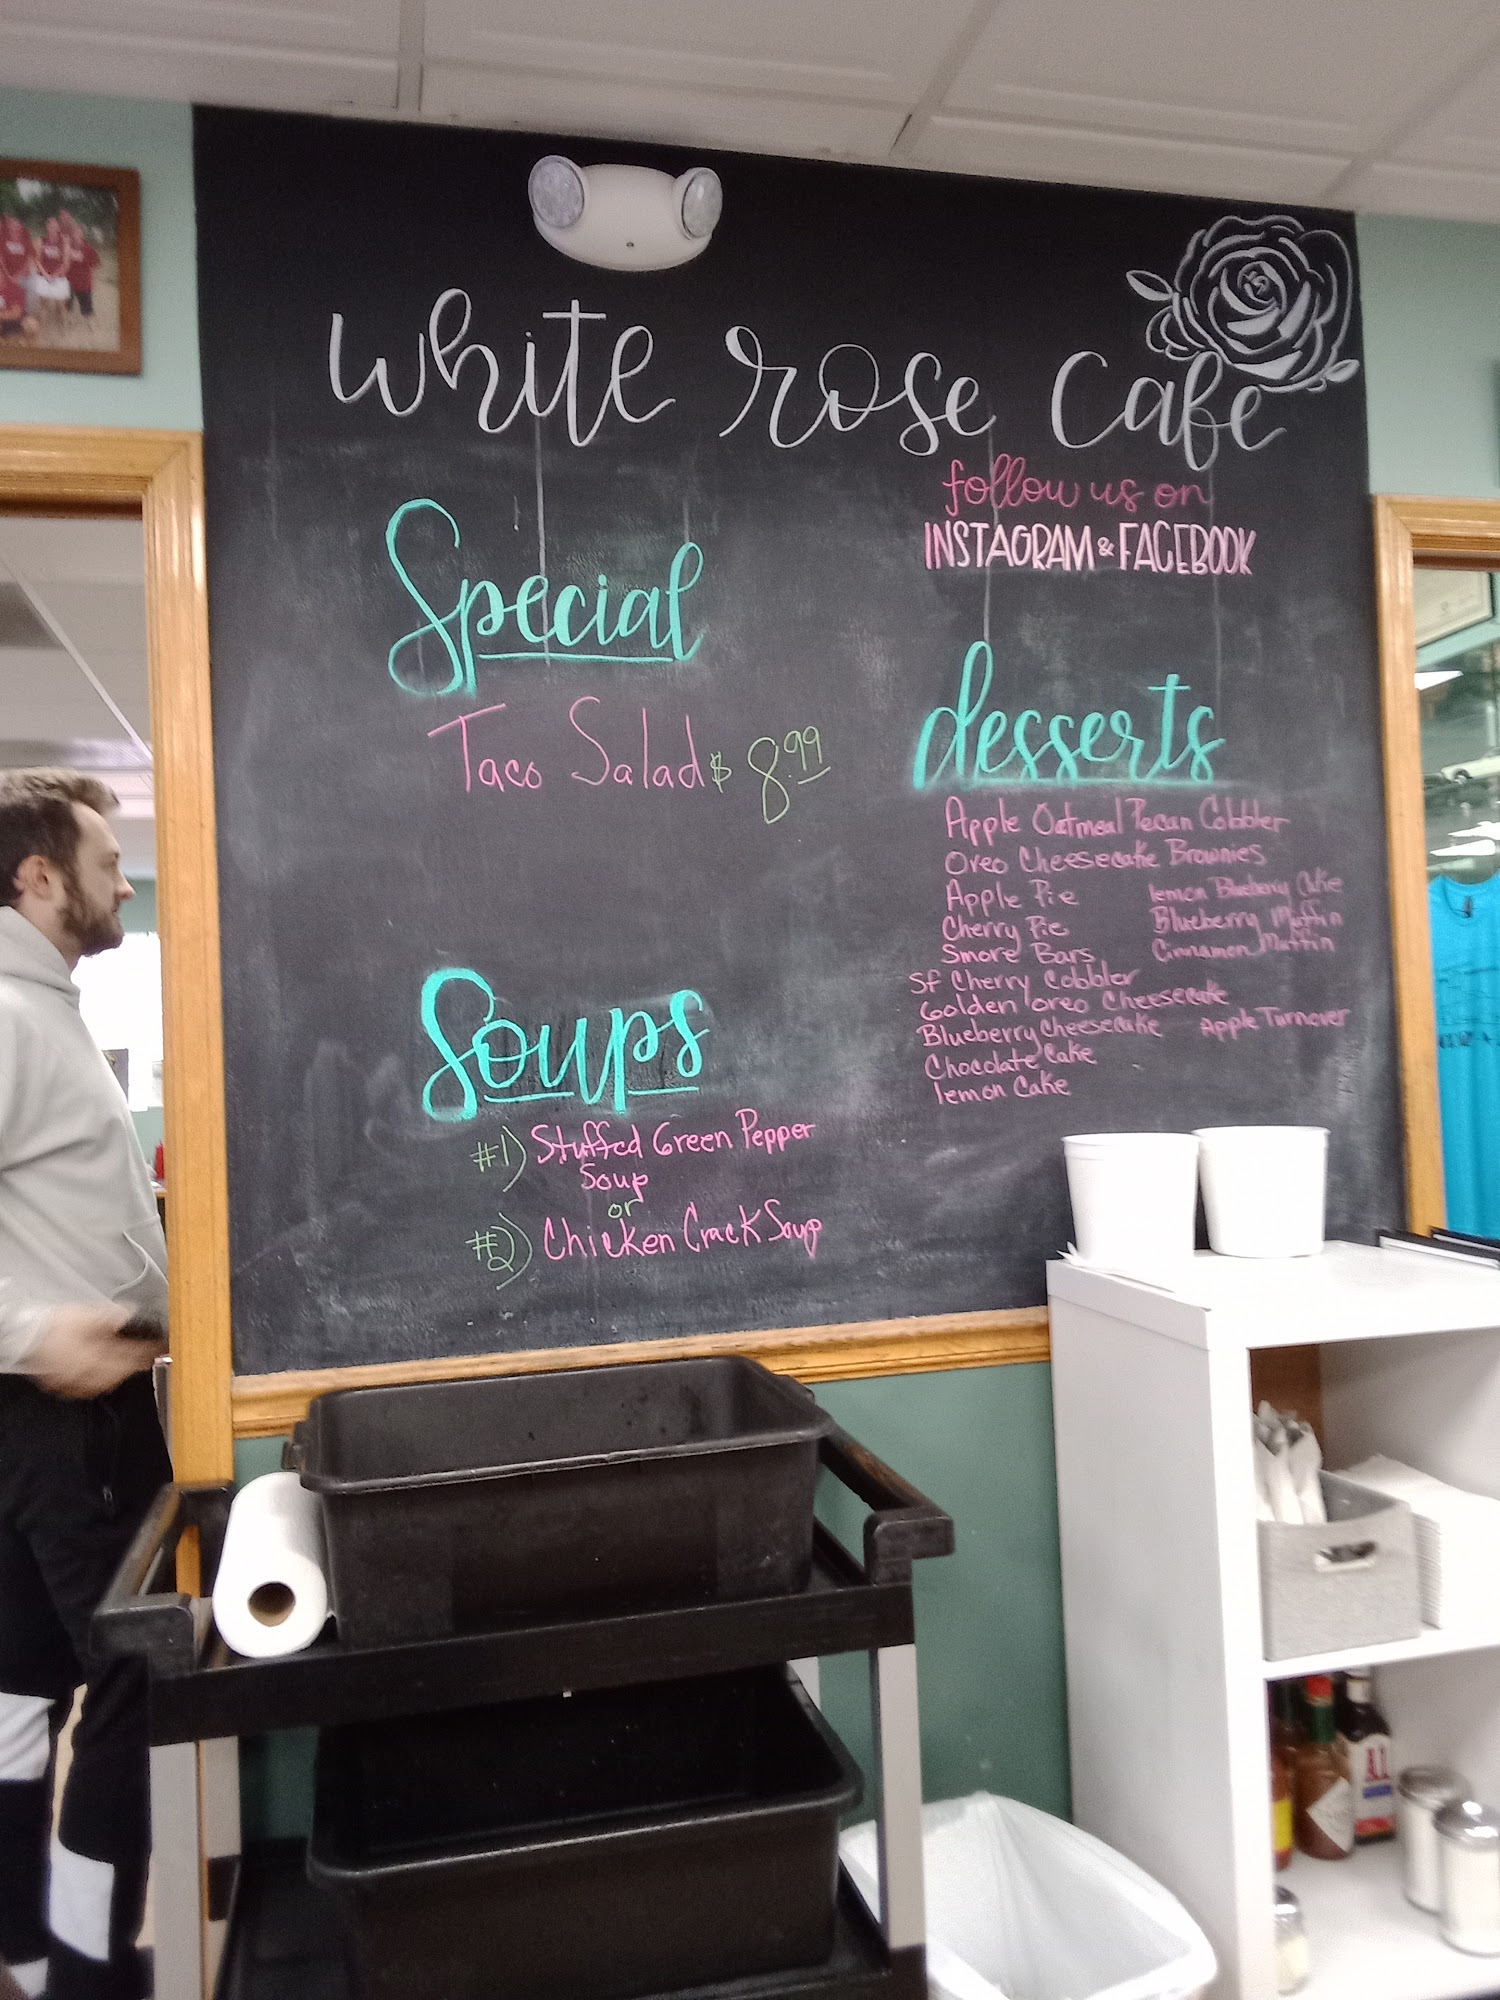 white rose cafe
follow us on
INSTAGRAM & FACEBOOK
Special
Taco Salad $8.99
Soups
#1) Stuffed Green Pepper
Soup
or
#2) Chicken Crack Soup
desserts
Apple Oatmeal Pecan Cobbler
Oreo Cheesecake Brownies
Apple Pie
lemon Blueberry Cake
Cherry Pie
Blueberry Muffin
Smore Bars
Cinnamon Muffin
SF Cherry Cobbler
Golden Oreo Cheesecake
Blueberry Cheesecake
Apple Turnover
Chocolate Cake
lemon Cake
A.1.